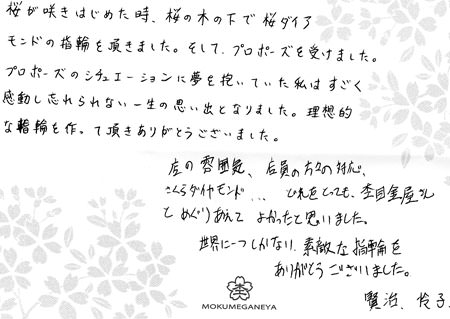 桜が咲きはじめた時、桜の木の下で桜ダイア
モンドの指輪を頂きました。そして、プロポーズを受けました。
プロポーズのシチュエーションに夢を抱いていた私はすごく
感動し忘れられない一生の思い出となりました。理想的
な指輪を作って頂きありがとうございました。
店の雰囲気、店員の方々の対応、
さくらダイヤモンド... どれをとっても、杢目金屋さん
とめぐりあえてよかったと思いました。
世界に一つしかない、素敵な指輪を
ありがとうございました。
賢治、
MOKUMEGANEYA